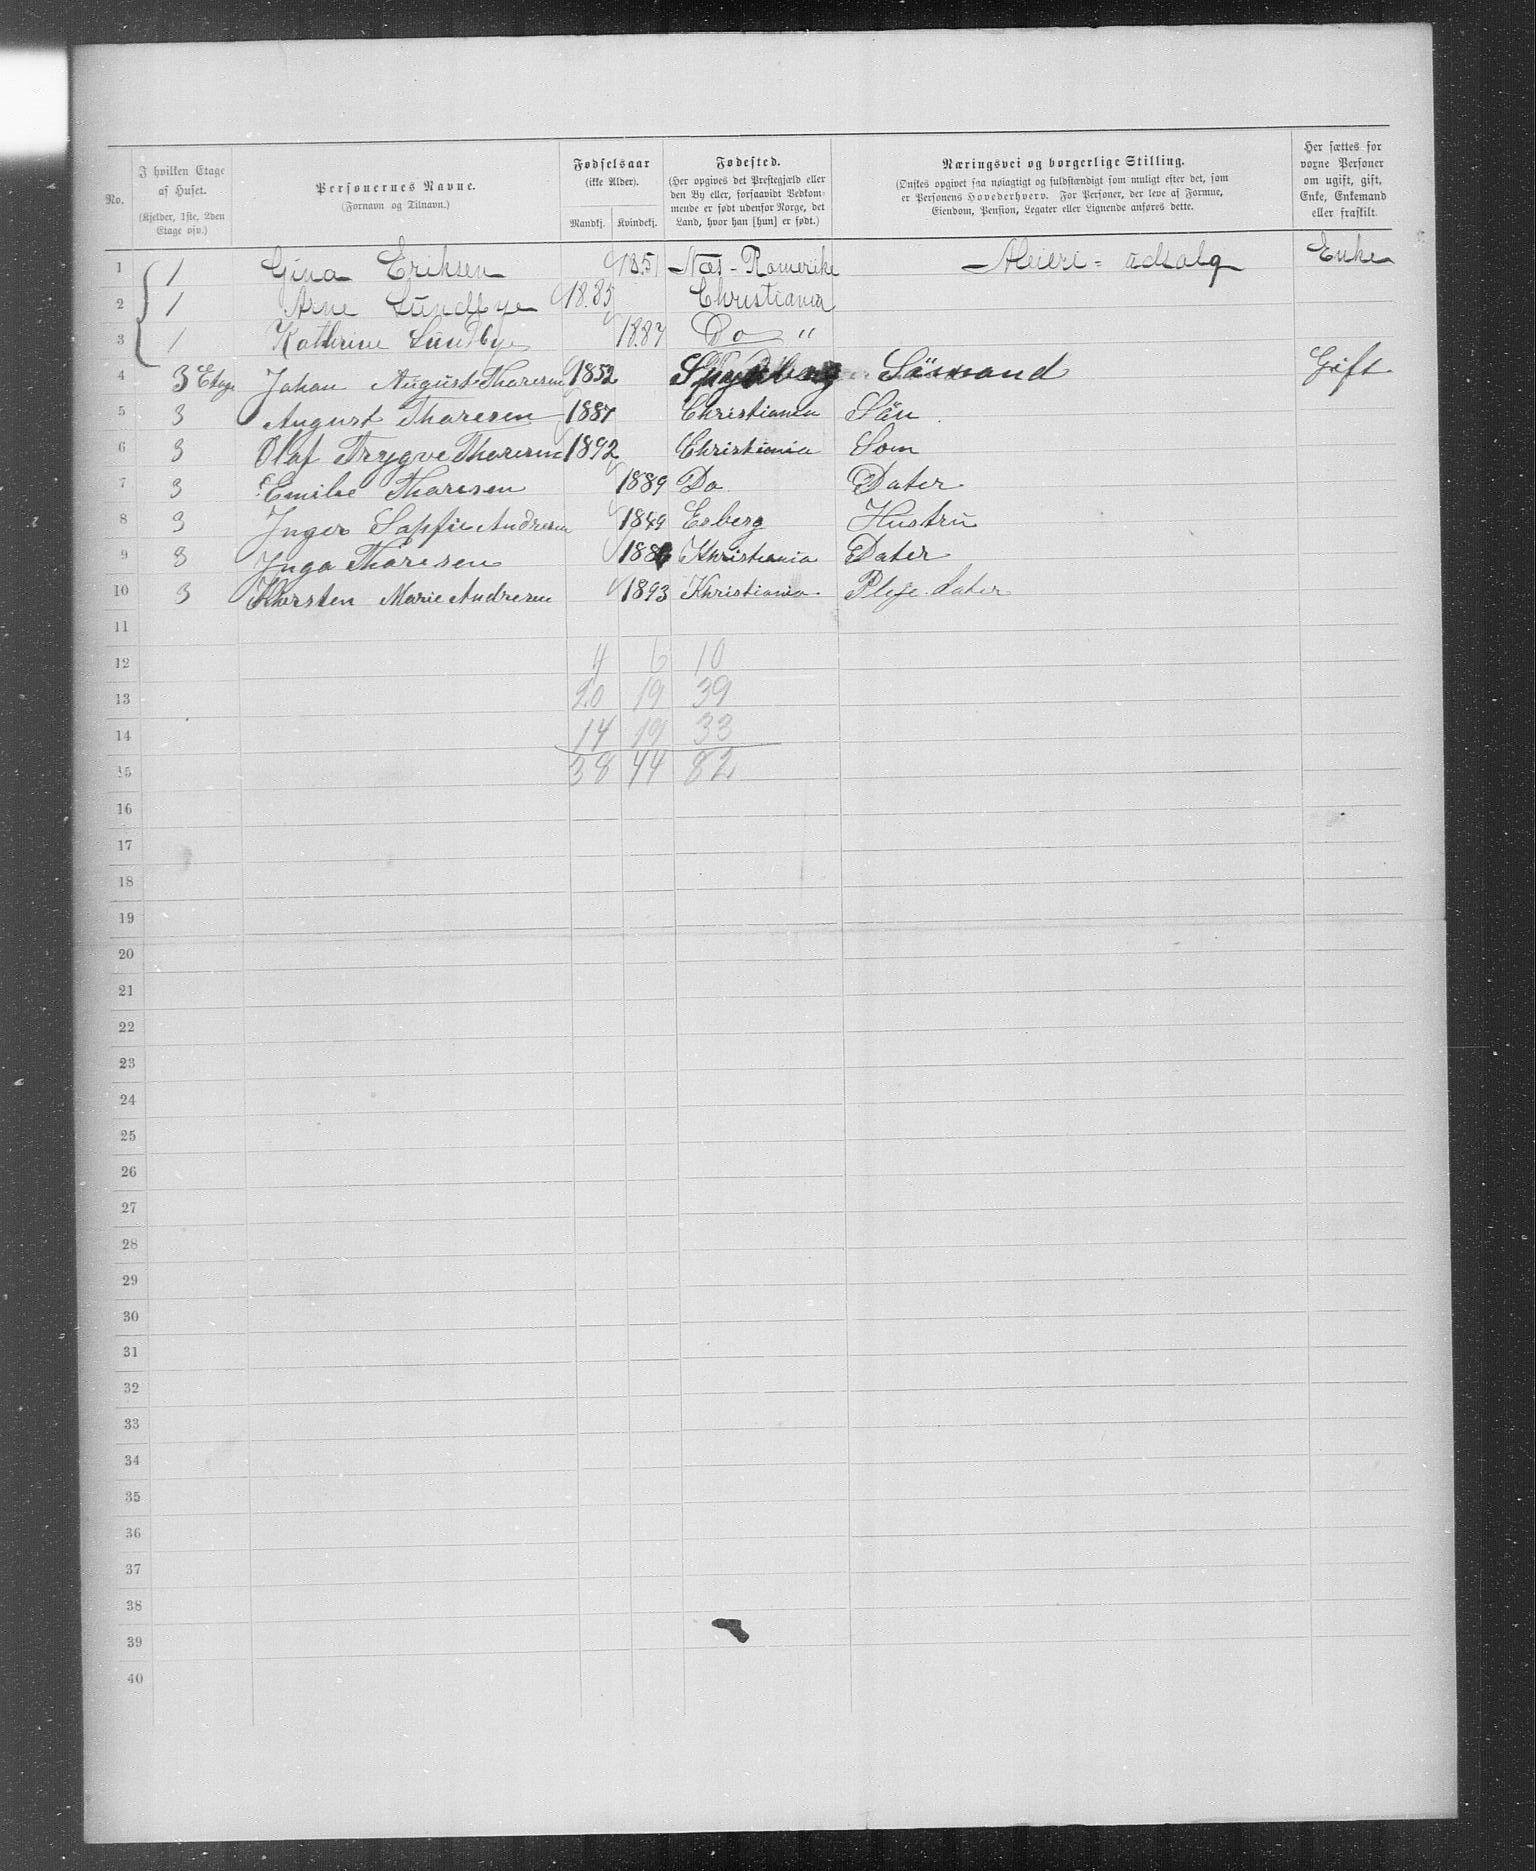 No.
I hvilken Etage af Huset.
(Kjelder, 1ste, 2den Etage osv.)
Personernes Navne.
(Fornavn og Tilnavn.)
Fødselsaar
(ikke Alder).
Mandkj. Kvindekj.
Fødested.
(Her opgives det Prestegjæld eller
den By eller, forsaavidt Vedkom-
mende er født udenfor Norge, det
Land, hvor han [hun] er født.)
Næringsvei og borgerlige Stilling.
(Ønskes opgivet saa nøiagtigt og fuldstændigt som muligt efter det, som
er Personens Hovederhverv. For Personer, der leve af Formue,
Eiendom, Pension, Legater eller Lignende anføres dette.
Her sættes for
voxne Personer
om ugift, gift,
Enke, Enkemand
eller fraskilt.
1 1 Gina Eriksen 1851 Næs-Romerike Meieri-udsalg Enke
2 1 Arne Lundbye 1885 Christiania
3 1 Kathrine Lundbye 1887 Do "
4 3 Etage Johan August Thoresen 1852 Sömand Gift
5 3 August Thoresen 1887 Christiania Sön
6 3 Olaf Trygve Thoresen 1892 Christiania Som
7 3 Emilie Thoresen 1889 Do Dater
8 3 Inger Sopfie Andresen 1849 Esberg Hustrü
9 3 Inga Thoresen 1886 Khristiania Dater
10 3 Khirsten Marie Andresen 1893 Khristiania. Pleje.dater
11
12 4 6 10
13 20 19 39
14 14 19 33
15 38 44 82
16
17
18
19
20
21
22
23
24
25
26
27
28
29
30
31
32
33
34
35
36
37
38
39
40